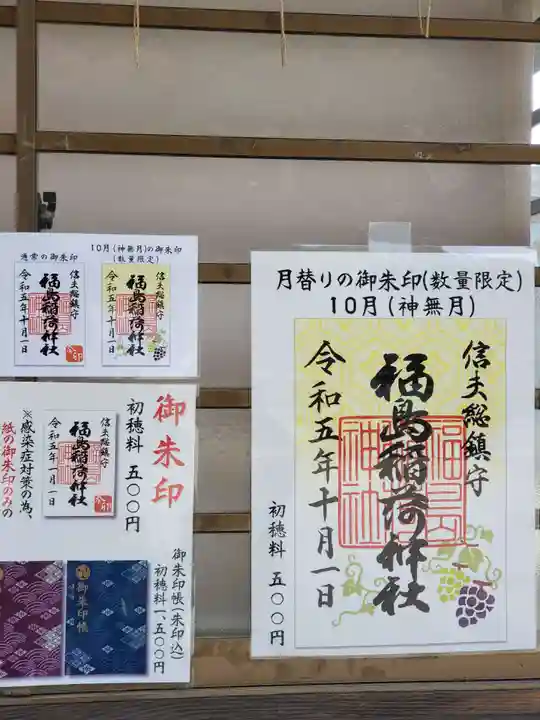 通常の御朱印
10月(神無月)の御朱印
(数量限定)
信夫総鎮守
福島稲荷神社
令和五年十月一日
信夫総鎮守
福島稲荷神社
令和五年十月一日
御朱印
初穂料 五〇〇円
信夫総鎮守
福島稲荷神社
令和五年一月一日
※感染症対策の為、
紙の御朱印のみの
御朱印帳(朱印込)
初穂料一、五〇〇円
御朱印帳
月替りの御朱印(数量限定)
10月(神無月)
信夫総鎮守
福島稲荷神社
令和五年十月一日
福島稲荷神社
初穂料 五〇〇円